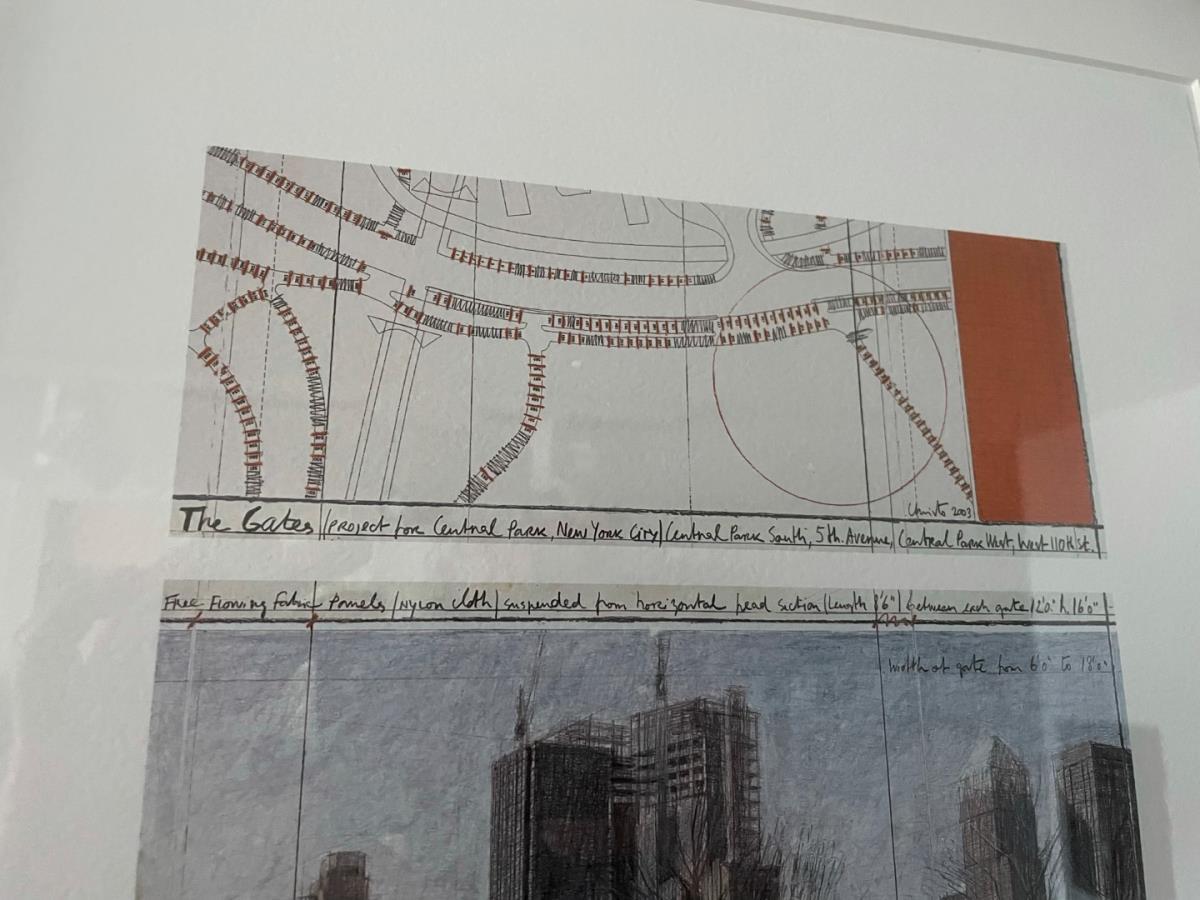 Christo 2003
The Gates (Project for Central Park, New York City) Central Park South, 5th. Avenue, Central Park West, West 110th st.
Free Flowing Fabric Panels (Nylon cloth) suspended from horizontal head section (Length 8'6") between each gate 12'0" h. 16'0"
width of gate from 6'0" to 18'0"